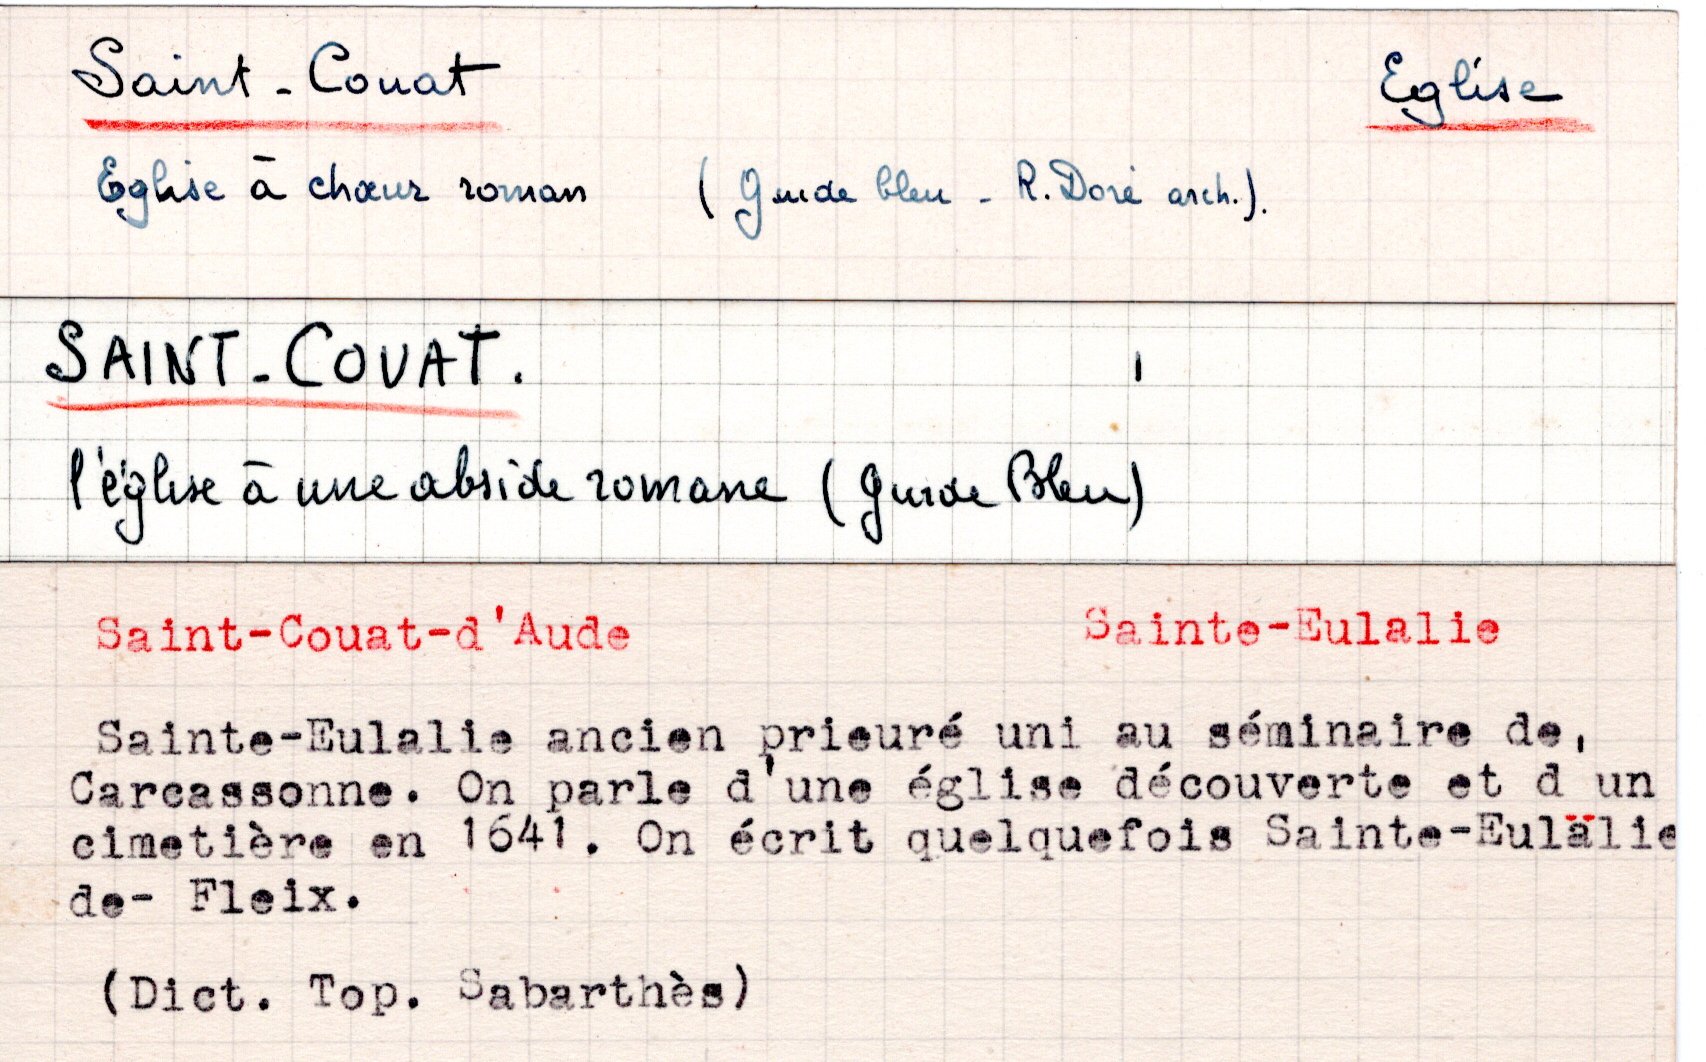 Saint-Couat Eglise
Eglise à chœur roman (Guide bleu - R. Doré arch.).
SAINT-COUAT.
l'église à une abside romane (Guide Bleu)
Saint-Couat-d'Aude Sainte-Eulalie
Sainte-Eulalie ancien prieuré uni au séminaire de
Carcassonne. On parle d'une église découverte et d'un
cimetière en 1641. On écrit quelquefois Sainte-Eulalie
de- Fleix.
(Dict. Top. Sabarthès)